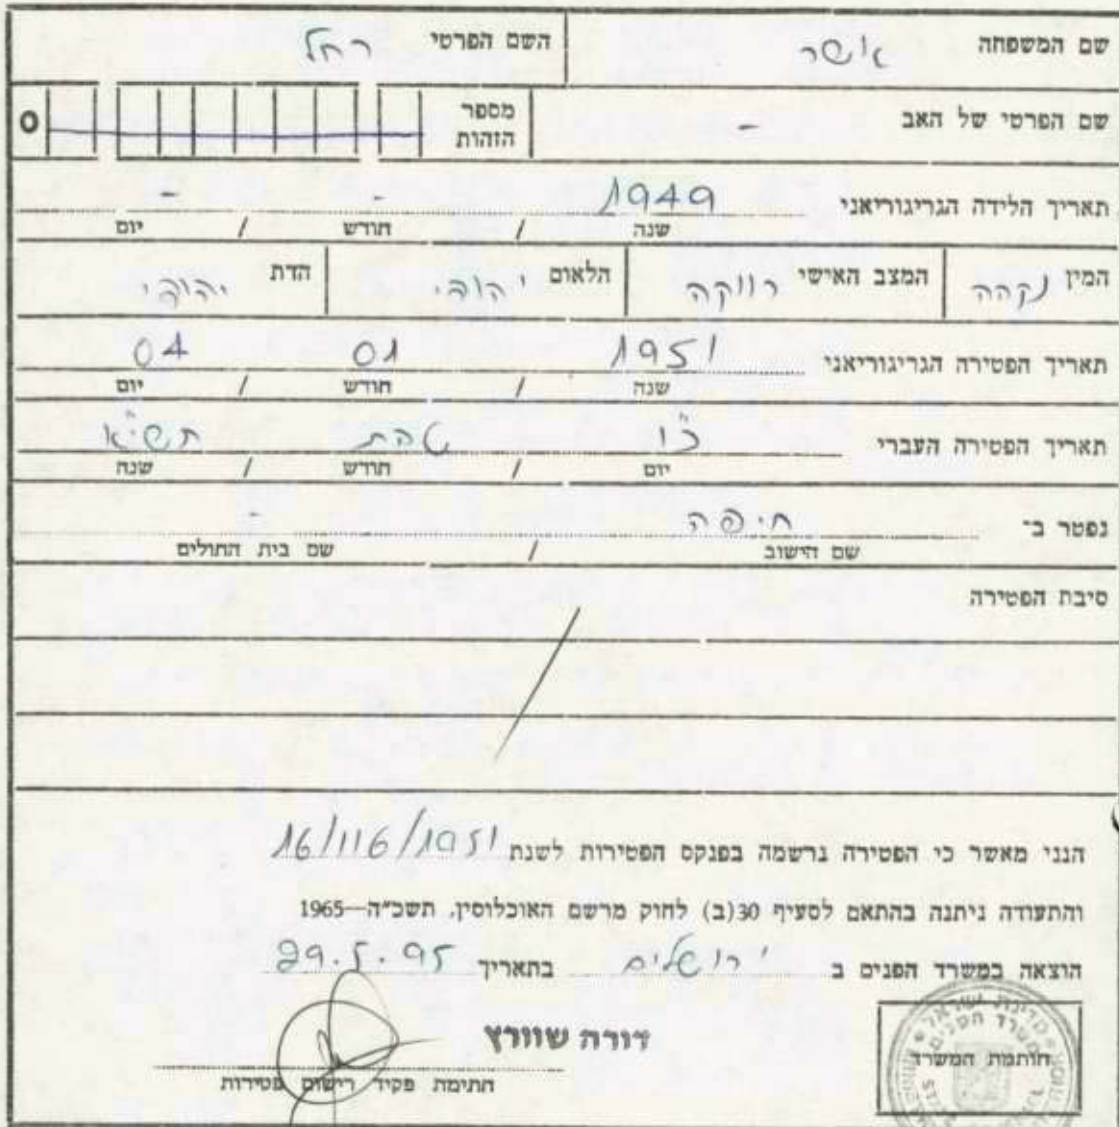 שם המשפחה אשר השם הפרטי רחל
שם הפרטי של האב - מספר הזהות 0
תאריך הלידה הגריגוריאני 1949 - -
שנה / חודש / יום
המין נקבה המצב האישי רווקה הלאום יהודי הדת יהודי
תאריך הפטירה הגריגוריאני 1951 01 04
שנה / חודש / יום
תאריך הפטירה העברי כ"ו טבת תשי"א
יום / חודש / שנה
נפטר ב- חיפה -
שם הישוב / שם בית החולים
סיבת הפטירה
הנני מאשר כי הפטירה נרשמה בפנקס הפטירות לשנת 16/116/1951
והתעודה ניתנה בהתאם לסעיף 30(ב) לחוק מרשם האוכלוסין, תשכ"ה—1965
הוצאה במשרד הפנים ב ירושלים בתאריך 29.5.95
דורה שוורץ
חתימת פקיד רישום פטירות
חותמת המשרד
מדינת ישראל
משרד הפנים